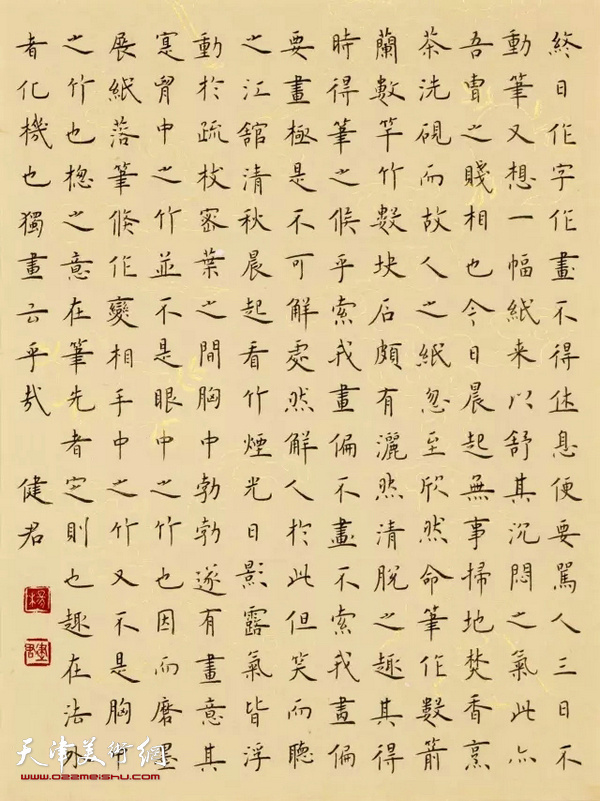 終日作字作畫不得休息便要罵人三日不
動筆又想一幅紙来以舒其沉悶之氣此亦
吾曹之賤相也今日晨起無事掃地焚香烹
茶洗硯而故人之紙忽至欣然命筆作數箭
蘭數竿竹數块石頗有灑然清脫之趣其得
時得筆之候乎索我畫偏不畫不索我畫偏
要畫極是不可解處然解人於此但笑而聽
之江舘清秋晨起看竹煙光日影露氣皆浮
動於疏枝密葉之間胸中勃勃遂有畫意其
寔胷中之竹並不是眼中之竹也因而磨墨
展紙落筆倏作變相手中之竹又不是胸中
之竹也楤之意在筆先者定則也趣在法外
者化機也獨畫云乎哉 健君
天津美術網
www.022meishu.com